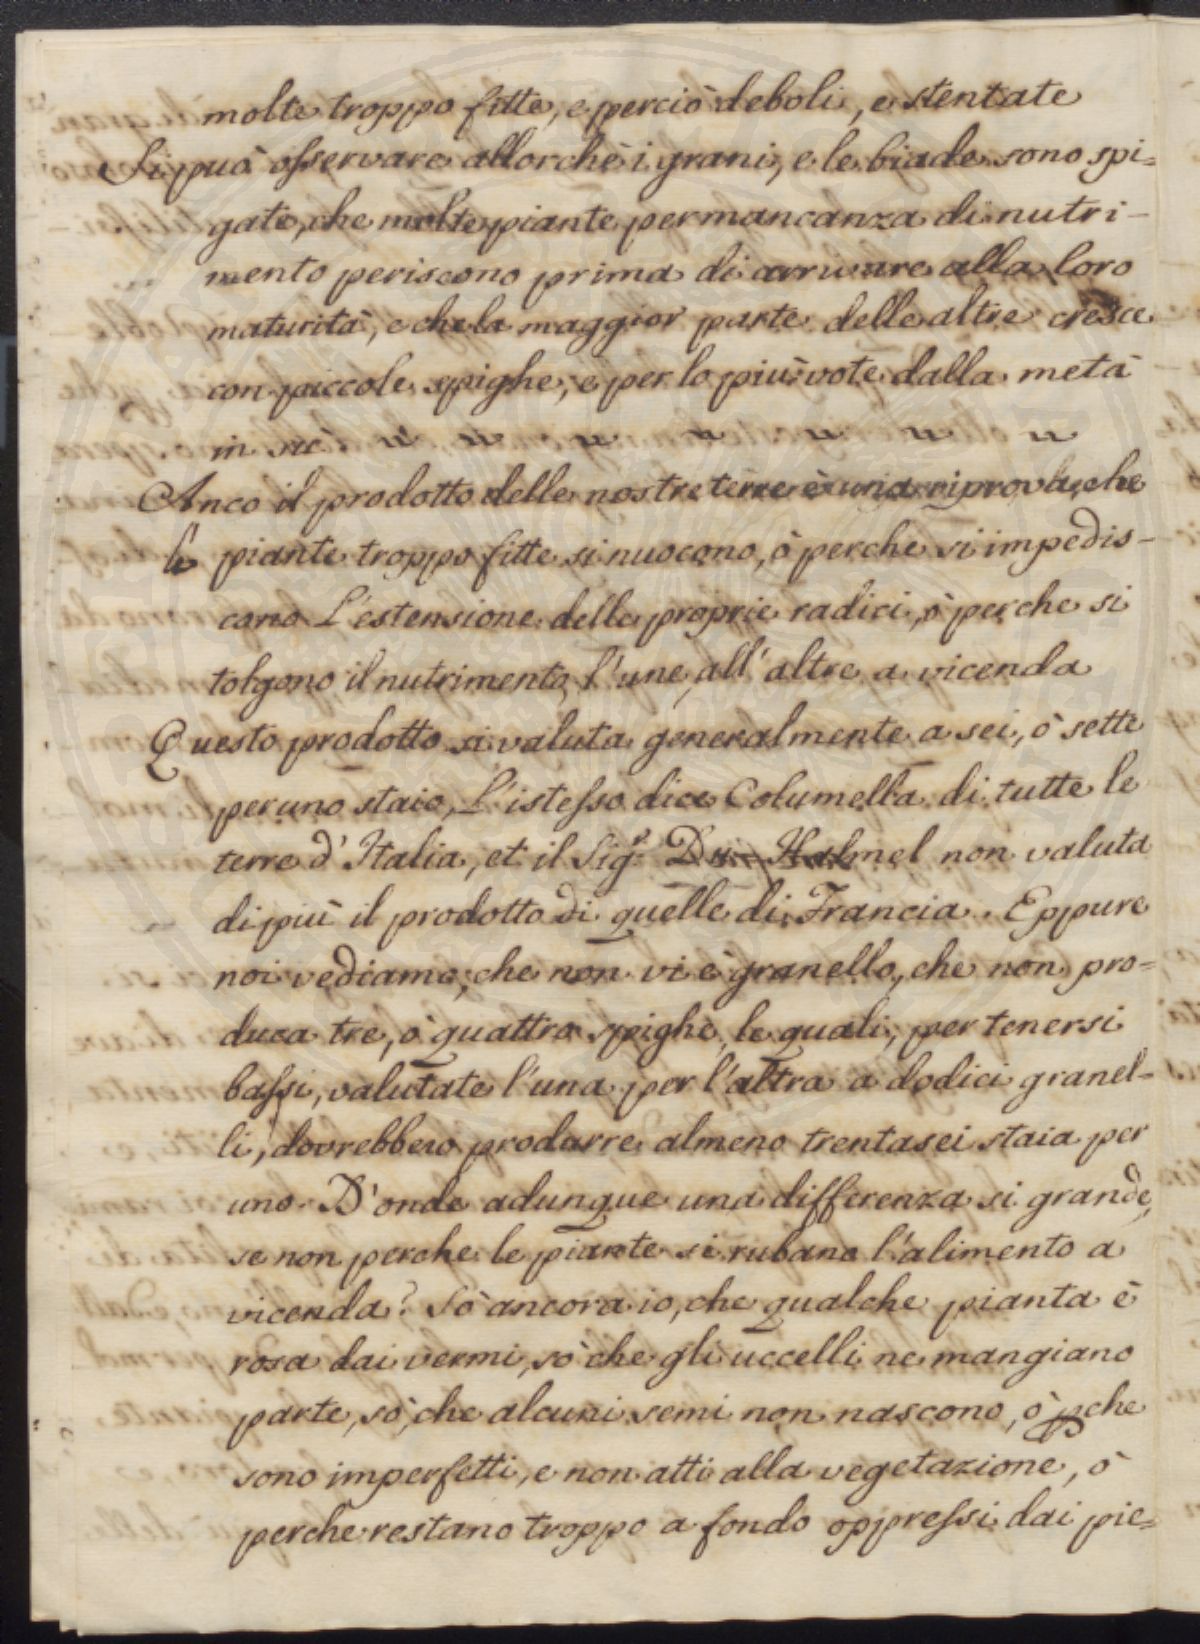 molte troppo fitte, e perciò deboli, e stentate
Si può osservare allorchè i grani, e le biade sono spi=
gate, che molte piante per mancanza di nutri-
mento periscono prima di arrivare alla loro
maturità, e che la maggior parte delle altre cresce
con piccole spighe, e per lo più vote dalla metà
in sù.
Anco il prodotto delle nostre terre è una riprova, che
le piante troppo fitte si nuocono, ò perche vi impedis-
cono l'estensione delle proprie radici, ò perche si
tolgono il nutrimento l'une all'altre a vicenda
Questo prodotto si valuta generalmente a sei, ò sette
per uno staio, L'istesso dice Columella di tutte le
terre d'Italia, et il Sig.r Du=Halmel non valuta
di più il prodotto di quelle di Francia. Eppure
noi vediamo, che non vi è granello, che non pro=
duca tre, ò quattro spighe, le quali, per tenersi
bassi, valutate l'una per l'altra a dodici granel=
li, dovrebbero produrre almeno trentasei staia per
uno. D'onde adunque una differenza si grande,
se non perche le piante si rubano l'alimento a
vicenda? Sò ancora io, che qualche pianta è
rosa dai vermi, sò che gli uccelli ne mangiano
parte, sò, che alcuni semi non nascono, ò pche
sono imperfetti, e non atti alla vegetazione, ò
perche restano troppo a fondo oppressi dai pie=